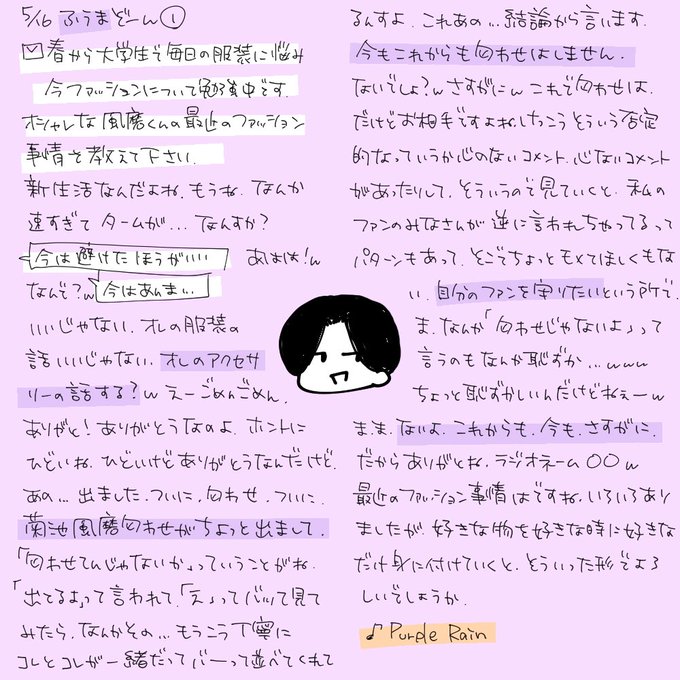 5/16 ふうまどーん①
✉春から大学生で毎日の服装に悩み
今ファッションについて勉強中です.
オシャレな風磨くんの最近のファッション
事情を教えて下さい.
新生活なんだよね.もうね.なんか
速すぎて タームが... なんすか?
今は避けたほうがいい あはは!w
なんで?w 今はあんま...
いいじゃない.オレの服装の
話いいじゃない.オレのアクセサ
リーの話する?w えーごめんごめん.
ありがと!ありがとうなのよ.ホントに
ひどいね.ひどいけどありがとうなんだけど.
あの... 出ました.ついに.匂わせ.ついに.
菊池風磨匂わせがちょっと出まして.
「匂わせてんじゃないか」っていうことがね.
「出てるよ」って言われて.「えっ」ってバッて見て
みたら.なんかその... もうこう丁寧に
コレとコレが一緒だってバーって並べてくれて
るんすよ.これあの...結論から言います.
今もこれからも匂わせはしません.
ないでしょ?w さすがにw これで匂わせは.
だけどお相手ですよね.けっこうそういう否定
的なっていうか心のないコメント.心ないコメント
があったりして.そういうので見ていくと.私の
ファンのみなさんが逆に言われちゃってるって
パターンもあって.そこでちょっとモメてほしくもな
い.自分のファンを守りたいという所で.
ま.なんか「匂わせじゃないよ」って
言うのもなんか恥ずか...www
ちょっと恥ずかしいんだけどねぇーw
まま.ないよ.これからも.今も.さすがに.
だからありがとね.ラジオネーム〇〇w
最近のファッション事情はですね.いろいろあり
ましたが.好きな物を好きな時に好きな
だけ身に付けていくと.そういった形でよろ
しいでしょうか.
♪Purple Rain